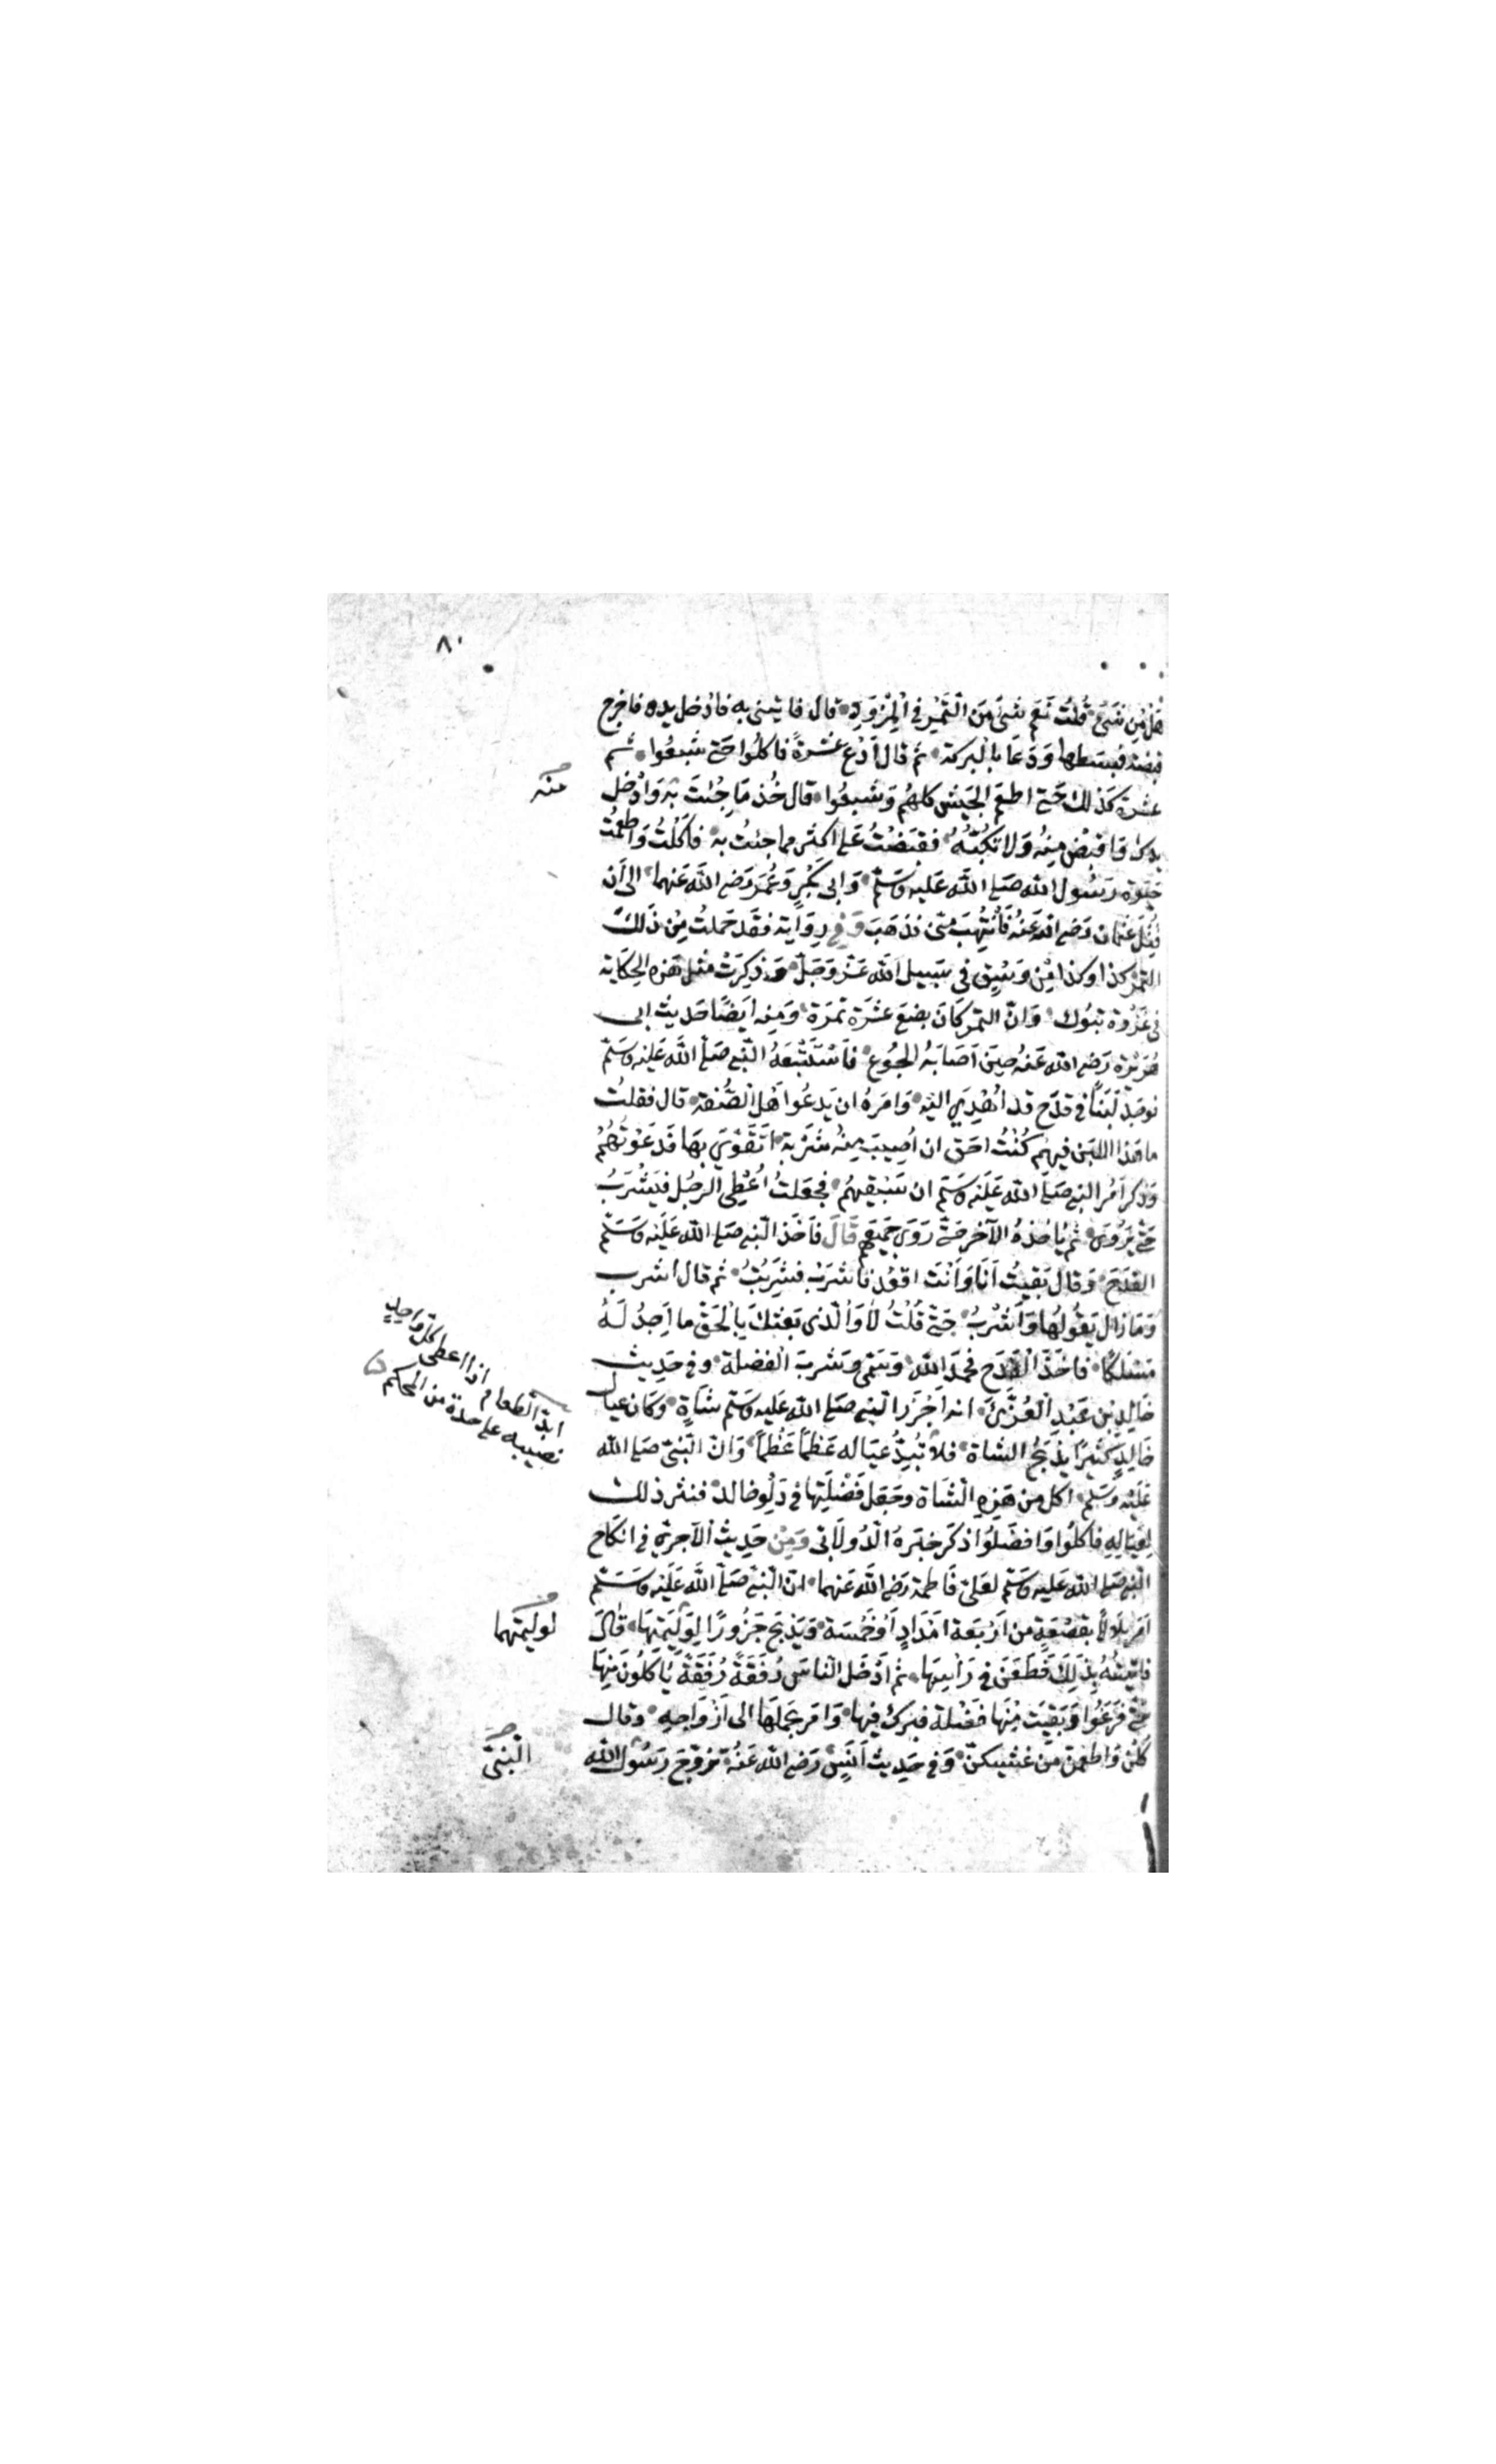 ٨٠
هَلْ مِن شَىْءٍ قُلْتُ نَعَم شَىْءٌ مِنَ التَّمْرِ فِى الْمِزْوَدِ قال فاتِنى به فادْخل يده فاخرج
قبضة فبَسَطها وَدَعَا بالبركة ثم قال اُدْعُ عَشَرةً فاكلوا حَتّى شَبِعُوا ثُم
عشرة كذلك حَتّى اطعَمَ الجيشَ كلهُم وَشبِعُوا قال خُذ مَا جِئْتَ بِه وَادْخِل
منه
يدك واقبِضْ مِنْهُ وَلا تكُبَّهُ فقبَضْتُ عَلى اكثر مما جئتُ به فاكَلْتُ وَاطعمْتُ
حَيٰوة رسُول الله صَلى الله عَليه وسَلّم وَابى بَكْرٍ وَعُمَرَ رَضى الله عَنهما الى اَن
قُتِلَ عثمان رَضى الله عَنْهُ فَانْتُهِبَ مِنّى فذَهَبَ وَفِى رِوَاية فقد حَملْتُ مِنْ ذَلكَ
التمْر كذا وكذا مِنْ وَسْقٍ فى سَبيل الله عَزّ وَجَلّ وَذُكِرَتْ مثل هَذِه الحِكَاية
فى غَزْوَة تبُوك وَانّ التمر كانَ بضعَ عَشَرَة تمرَة وَمنه اَيضًا حَديث ابى
هُرَيْرَة رَضى الله عَنهُ حِينَ اَصَابَهُ الجُوع فَاسْتَتْبَعَهُ النّبى صَلى الله عَليْه وسَلّم
فوَجَدَ لَبَنًا فى قدَح قد اُهْدِىَ اليْهِ وَامَرهُ ان يَدعُوَا هْلَ الصُّفَّة قال فقلتُ
ما هَذا اللبَن فيهم كُنْتُ احَق ان اُصِيبَ مِنْهُ شَرْبة اَتَقَوّى بهَا فَدَعَوْتُهُمْ
وَذكر اَمْرَ النبى صَلى الله عَلَيْه وسَلّم ان يَسْقيَهُم فجَعَلتُ اُعْطِى الرّجُل فيَشْرَبُ
حَتّى يَرْوَى ثم يَاخذهُ الآخَر حَتّى رَوِىَ جَميعُهم قَالَ فاَخَذ النّبى صَلى الله عَليه وَسَلّم
القدَحَ وَقال بَقيتُ اَنَا وَاَنْتَ اقعُد فاشرَبْ فشَرِبْتُ ثم قال اشرب
وَمَا زال يَقُولُهَا وَاَشْرَبُ حَتّى قُلْتُ لا وَالّذى بَعَثَكَ بِالْحَقّ ما اَجِدُ لَهُ
مَسْلَكًا فاخَذَ القدَح فحَمدَ الله وَسَمّى وَشَربَ الفضلة وفى حَديث
خَالِد بْن عَبْدِ الْعُزّى انه اَجْزَرَ النّبى صَلى الله عَليه وسَلّم شاةً وَكان عيال
خَالدٍ كَثيرًا يَذبَحُ الشاة فلا تُبِدُّ عيَاله عَظمًا عَظمًا وَانّ النّبىّ صَلى الله
ابدّ الطعام اذا اعطى كل واحِدٍ
نصيبه على حدة من المحكم
عَلَيْه وَسَلم اكل من هَذِهِ الشَاة وجَعَل فَضْلتَها فى دَلْوِ خالد فنثر ذلك
لِعيَالِهِ فاكلُوا وَافضَلُوا ذكَر خبَرَهُ الدّولَابى وَمِنْ حَديثِ الآجرى فى انكاح
النّبى صَلى الله عَليه وسَلّم لعَلىّ فَاطمَة رَضى الله عَنهما انّ النّبى صَلى الله عَلَيْه وَسَلّم
اَمَر بلَالًا بقَصْعَةٍ من اَرْبَعَة اَمْدَادٍ اَوْ خَمْسَة وَيَذبَح جَزُورًا لِوَلِيَمتِهَا قَالَ
لوليمتهما
فاتيْتُهُ بذلِكَ فَطَعَنَ فى رَاْسِهَا ثم اَدْخَلَ النّاسَ رُفقَةً رُفْقَةً يَاكلُونَ مِنْهَا
حَتّى فَرَغُوا وَبَقيَتْ مِنْهَا فَضْلَة فبَرك فِيهَا وَامَر بحَمْلهَا الى اَزْوَاجِهِ وقال
كُلْنَ وَاطعِمْنَ مَنْ غشيكنّ وَفى حَديث اَنَسٍ رَضى الله عَنْهُ تزوّجَ رَسُول الله
النّبىّ